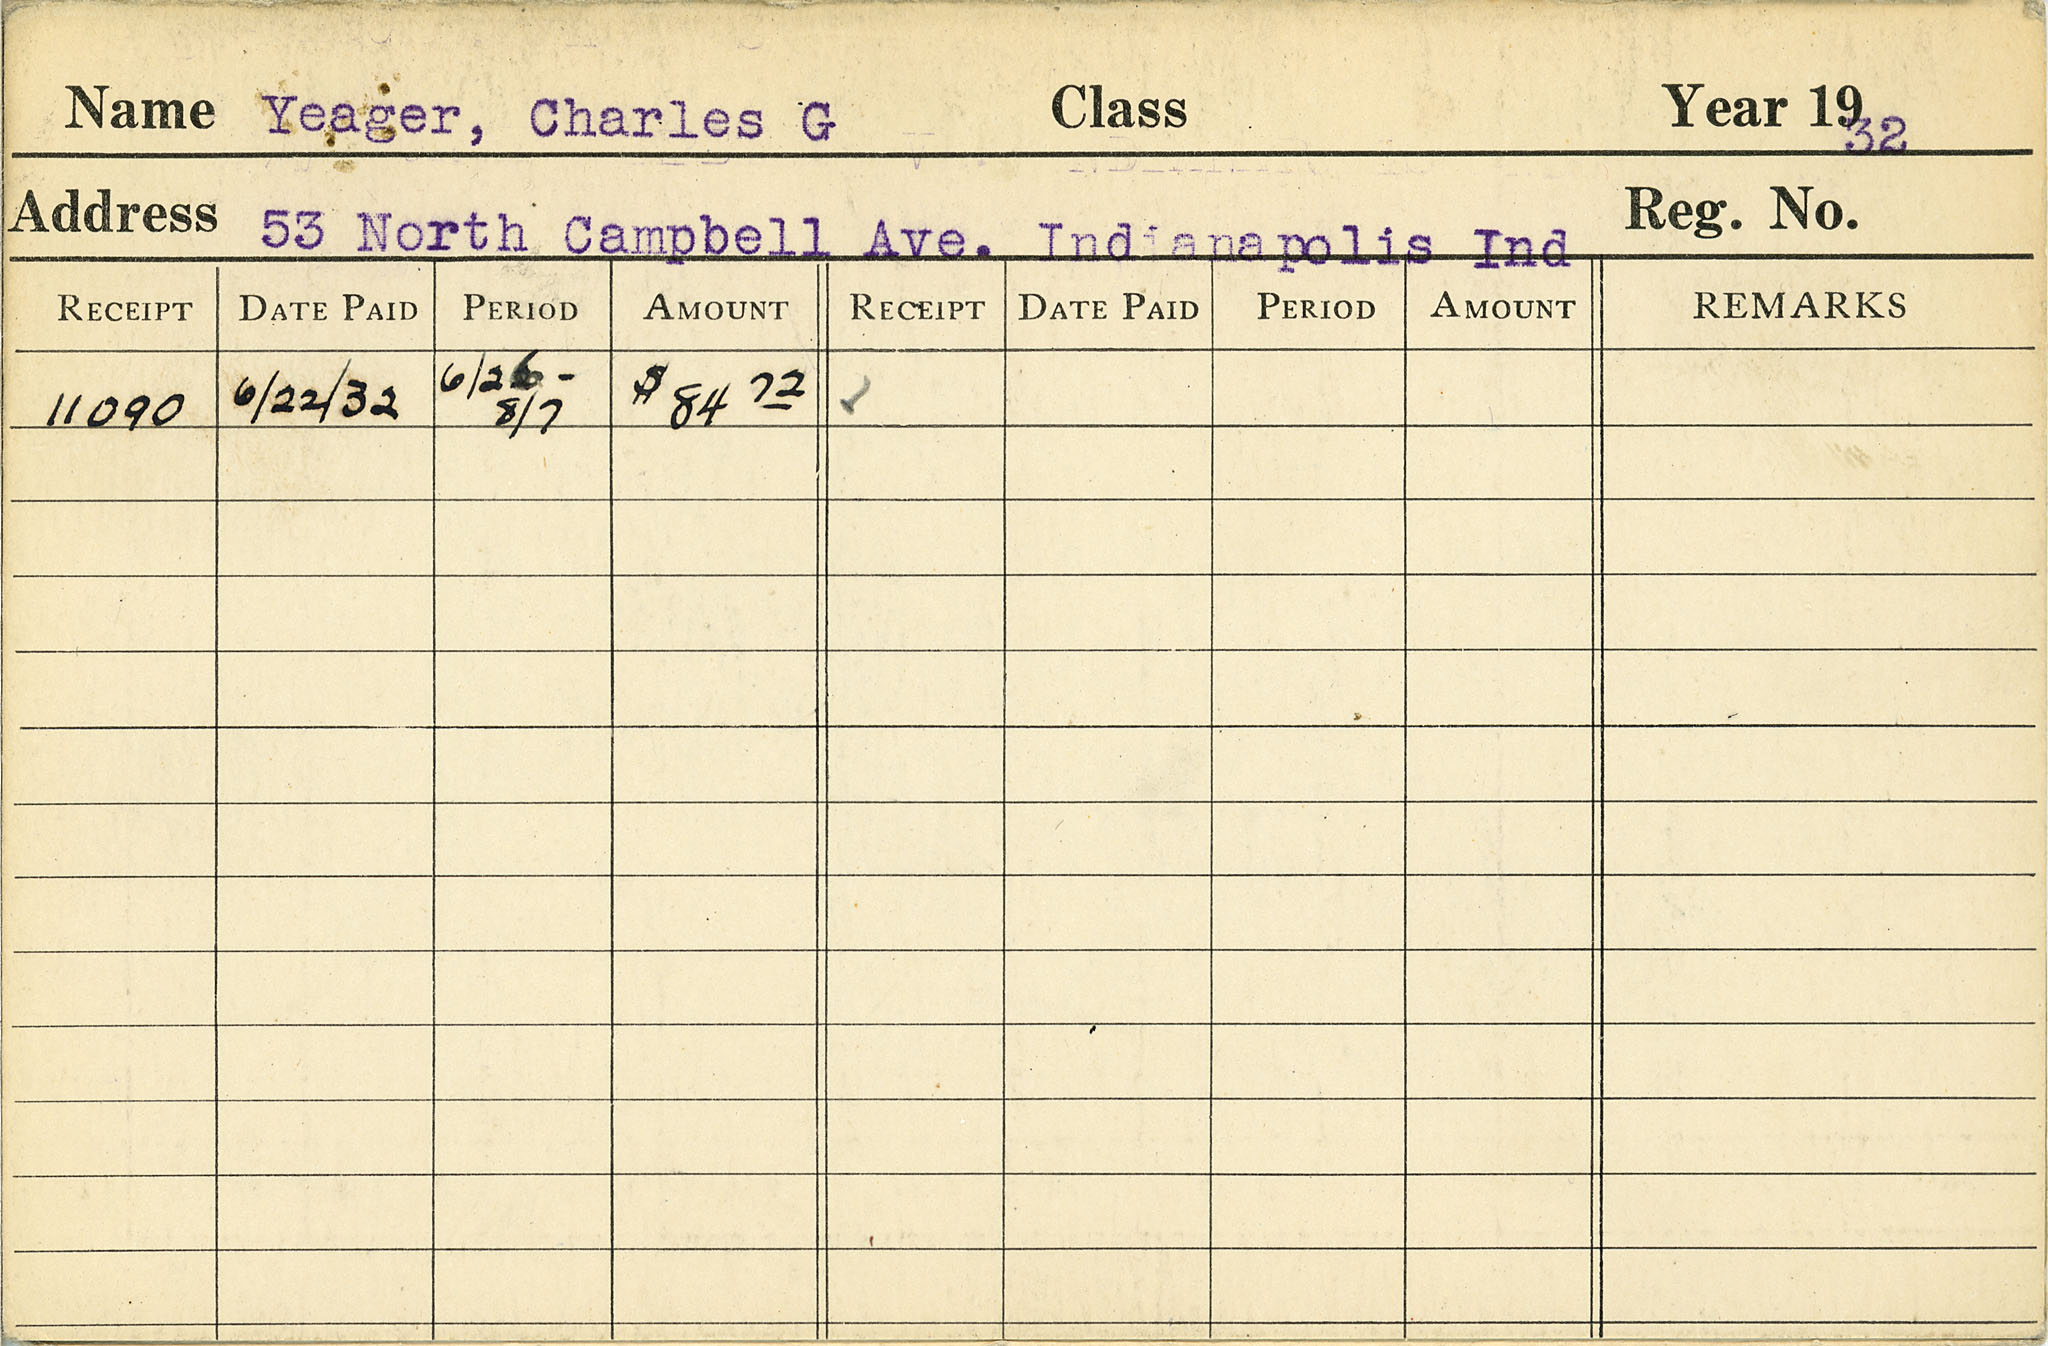 Name Yeager, Charles G Class Year 1932
Address 53 North Campbell Ave. Indianapolis Ind Reg. No.
RECEIPT DATE PAID PERIOD AMOUNT RECEIPT DATE PAID PERIOD AMOUNT REMARKS
11090 6/22/32 6/26 - 8/7 $84 72 ✓